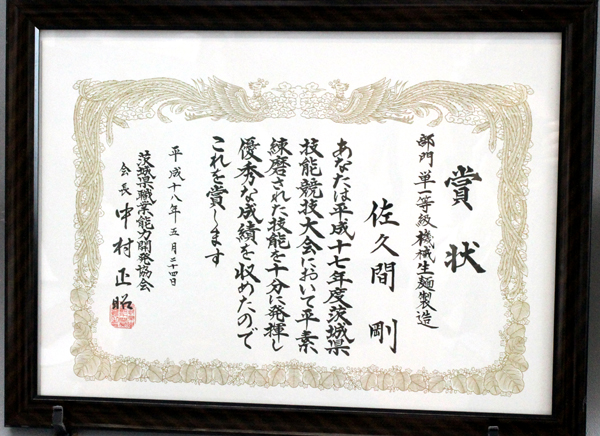 賞状
部門 単一等級機械生麺製造
佐久間 剛
あなたは平成十七年度茨城県
技能競技大会において平素
練磨された技能を十分に発揮し
優秀な成績を収めたので
これを賞します
平成十八年五月二十四日
茨城県職業能力開発協会
会長 中村正昭